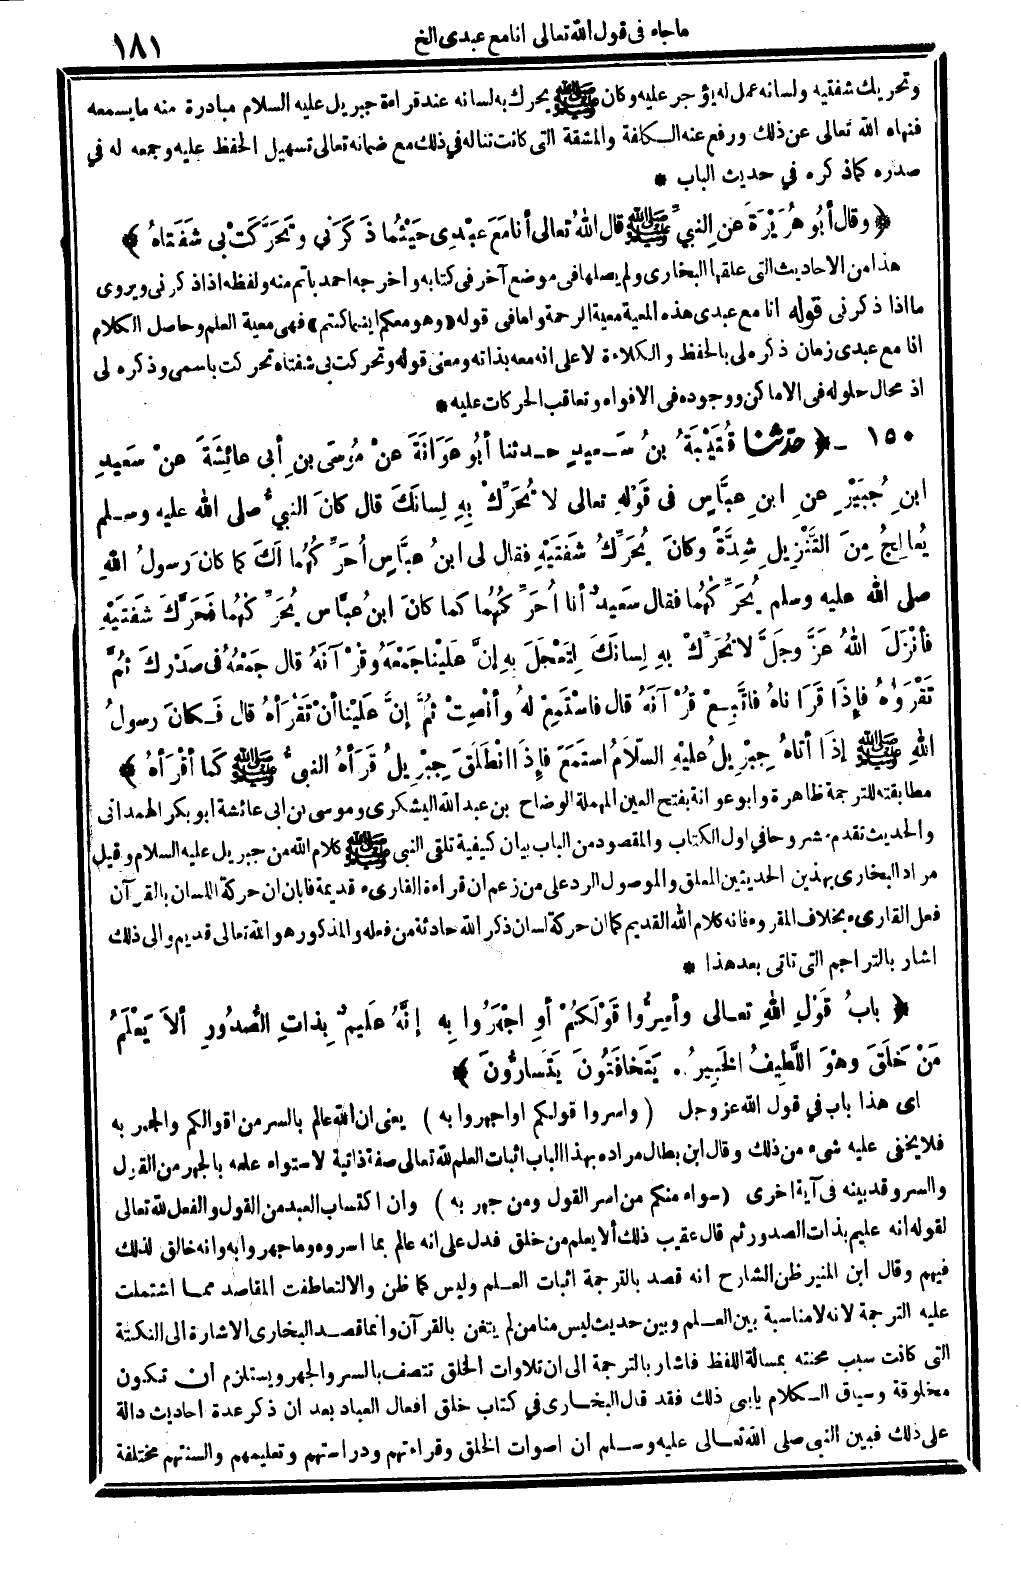 ما جاء فى قول الله تعالى انا مع عبدى الخ
١٨١
وتحريك شفتيه ولسانه عمل له يؤجر عليه وكان ﷺ يحرك به لسانه عند قراءة جبريل عليه السلام مبادرة منه ما يسمعه
فنهاه الله تعالى عن ذلك ورفع عنه الكلفة والمشقة التى كانت تناله فى ذلك مع ضمانه تعالى تسهيل الحفظ عليه وجمعه له في
صدره كما ذكره في حديث الباب *
﴿ وقال أبُو هُرَيْرَةَ عَنِ النبيِّ ﷺ قال اللهُ تعالى أنا مَعَ عَبْدِى حَيْثُما ذَكَرَني وتَحَرَّكَتْ بى شَفَتاهُ ﴾
هذا من الاحاديث التى علقها البخارى ولم يصلها فى موضع آخر فى كتابه واخرجه احمد باتم منه ولفظه اذا ذكرنى ويروى
ما اذا ذكرنى قوله انا مع عبدى هذه المعية معية الرحمة واما فى قوله «وهو معكم اينما كنتم» فهى معية العلم وحاصل الكلام
انا مع عبدى زمان ذكره لى بالحفظ والكلاءة لا على انه معه بذاته ومعنى قوله وتحركت بى شفتاه تحركت باسمى وذكره لى
اذ محال حلوله فى الاماكن ووجوده فى الافواه وتعاقب الحركات عليه *
١٥٠ - ﴿ حدثنا قُتَيْبَةُ بنُ سَعِيدٍ حدثنا أبُو عَوَانَةَ عَنْ مُوسَى بنِ أبى عائِشَةَ عَنْ سَعِيدِ
ابنِ جُبَيْرٍ عنِ ابنِ عبَّاسٍ فى قَوْلِهِ تعالى لا تُحَرِّكْ بِهِ لِسانَكَ قال كانَ النبيُّ صلى الله عليه وسلم
يُعالِجُ مِنَ التَّنْزِيلِ شِدَّةً وكانَ يُحَرِّكُ شَفَتَيْهِ فقال لى ابنُ عبَّاسٍ أُحَرِّكُهُما لَكَ كما كانَ رَسولُ اللهِ
صلى الله عليه وسلم يُحَرِّكُهُما فقال سَعِيدٌ أنا أُحَرِّكُهُما كما كانَ ابنُ عبَّاسٍ يُحَرِّكُهُما فَحَرَّكَ شَفَتَيْهِ
فأنْزَلَ اللهُ عَزَّ وجَلَّ لا تُحَرِّكْ بِهِ لِسانَكَ لِتَعْجَلَ بِهِ إنَّ عَلَيْنا جَمْعَهُ وقُرْآنَهُ قال جَمْعُهُ فى صَدْرِكَ ثُمَّ
تَقْرَؤُهُ فإذَا قَرَأناهُ فاتَّبِعْ قُرْآنَهُ قال فاسْتَمِعْ لَهُ وأنْصِتْ ثُمَّ إنَّ عَلَيْنا أنْ تَقْرَأهُ قال فَكانَ رسولُ
اللهِ ﷺ إذَا أتاهُ جِبْرِيلُ عليْهِ السّلاَمُ اسْتَمَعَ فإذَا انْطَلَقَ جِبْرِيلُ قَرَأهُ النبيُّ ﷺ كَما أقْرَأهُ ﴾
مطابقته للترجمة ظاهرة وابو عوانة بفتح العين المهملة الوضاح بن عبد الله اليشكرى وموسى بن ابى عائشة ابو بكر الهمدانى
والحديث تقدم مشروحا في اول الكتاب والمقصود من الباب بيان كيفية تلقى النبى ﷺ كلام الله من جبريل عليه السلام وقيل
مراد البخارى بهذين الحديثين المعلق والموصول الرد على من زعم ان قراءة القارىء قديمة فابان ان حركة اللسان بالقرآن
فعل القارىء بخلاف المقروء فانه كلام الله القديم كما ان حركة لسان ذكر الله حادثة من فعله والمذكور هو الله تعالى قديم والى ذلك
اشار بالتراجم التى تاتى بعد هذا *
﴿ بابُ قَوْلِ اللهِ تعالى وأسِرُّوا قَوْلَكُمْ أوِ اجْهَرُوا بِهِ إنَّهُ عَلِيمٌ بِذاتِ الصُّدُورِ ألاَ يَعْلَمُ
مَنْ خَلَقَ وهْوَ اللَّطِيفُ الخَبِيرُ. يَتَخافَتُونَ يَتَسارُّونَ ﴾
اى هذا باب في قول الله عز وجل (واسروا قولكم او اجهروا به) يعنى ان الله عالم بالسر من اقوالكم والجهر به
فلا يخفى عليه شىء من ذلك وقال ابن بطال مراده بهذا الباب اثبات العلم لله تعالى صفة ذاتية لاستواء علمه بالجهر من القول
والسر وقد بينه فى آية اخرى (سواء منكم من اسر القول ومن جهر به) وان اكتساب العبد من القول والفعل لله تعالى
لقوله أنه عليم بذات الصدور ثم قال عقيب ذلك ألا يعلم من خلق فدل على انه عالم بما اسروه وما جهروا به وانه خالق لذلك
فيهم وقال ابن المنير ظن الشارح انه قصد بالترجمة اثبات العلم وليس كما ظن والا لتعاطفت المقاصد مما اشتملت
عليه الترجمة لانه لا مناسبة بين العلم وبين حديث ليس منا من لم يتغن بالقرآن وانما قصد البخارى الاشارة الى النكتة
التى كانت سبب محنته بمسالة اللفظ فاشار بالترجمة الى ان تلاوات الخلق تتصف بالسر والجهر ويستلزم ان تكون
مخلوقة وسياق الكلام يابى ذلك فقد قال البخارى في كتاب خلق افعال العباد بعد ان ذكر عدة احاديث دالة
على ذلك فبين النبى صلى الله تعالى عليه وسلم ان اصوات الخلق وقراءتهم ودراستهم وتعليمهم والسنتهم مختلفة